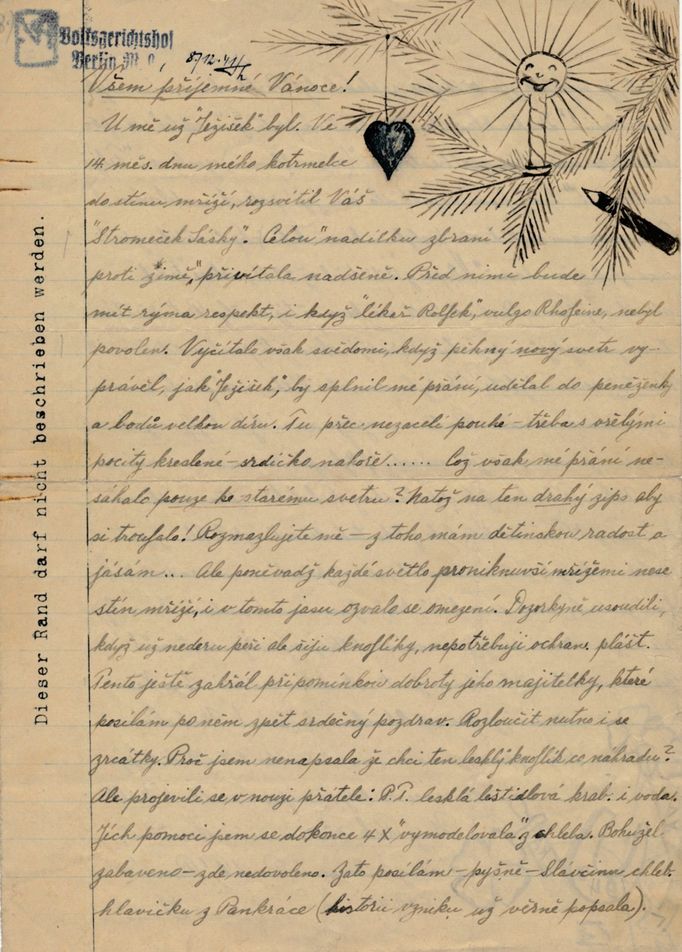 Volksgerichtshof
Berlin
8/12.44
Všem příjemné Vánoce!
U mě už "Ježíšek" byl. Ve
14. měs. dnu mého kotrmelce
do stínu mříží, rozsvítil Váš
"Stromeček Lásky". Celou "nadílku zbraní
proti zimě," přivítala nadšeně. Před nimi bude
mít rýma respekt, i když "lékař Rolfek", vulgo Rhofeine, nebyl
povolen. Vyčítalo však svědomí, když pěkný nový svetr vy-
právěl, jak "Ježíšek", by splnil mé přání, udělal do peněženky
a bodů velkou díru. Tu přec nezacelí pouhé – třeba s vřelými
pocity kreslené – srdíčko nahoře...... Což však mé přání ne-
sáhalo pouze ke starému svetru? Natož na ten drahý zips aby
si troufalo! Rozmazlujete mě – z toho mám dětinskou radost a
jásám... Ale poněvadž každé světlo proniknuvší mřížemi nese
stín mříží, i v tomto jasu ozvalo se omezení. Dozorkyně usoudili,
když už nederu peří ale šiju knoflíky, nepotřebuji ochran. plášť.
Tento ještě zahřál připomínkou dobroty jeho majitelky, které
posílám po něm zpět srdečný pozdrav. Rozloučit nutno i se
zrcátky. Proč jsem nenapsala že chci ten lesklý knoflík co náhradu?
Ale projevili se v nouzi přátelé: P.T. lesklá leštidlová krab. i voda.
Jich pomocí jsem se dokonce 4x "vymodelovala" z chleba. Bohužel
zabaveno – zde nedovoleno. Zato posílám – pyšně – Slávčinu chleb.
hlavičku z Pankráce (historii vzniku už věrně popsala).
Dieser Rand darf nicht beschrieben werden.